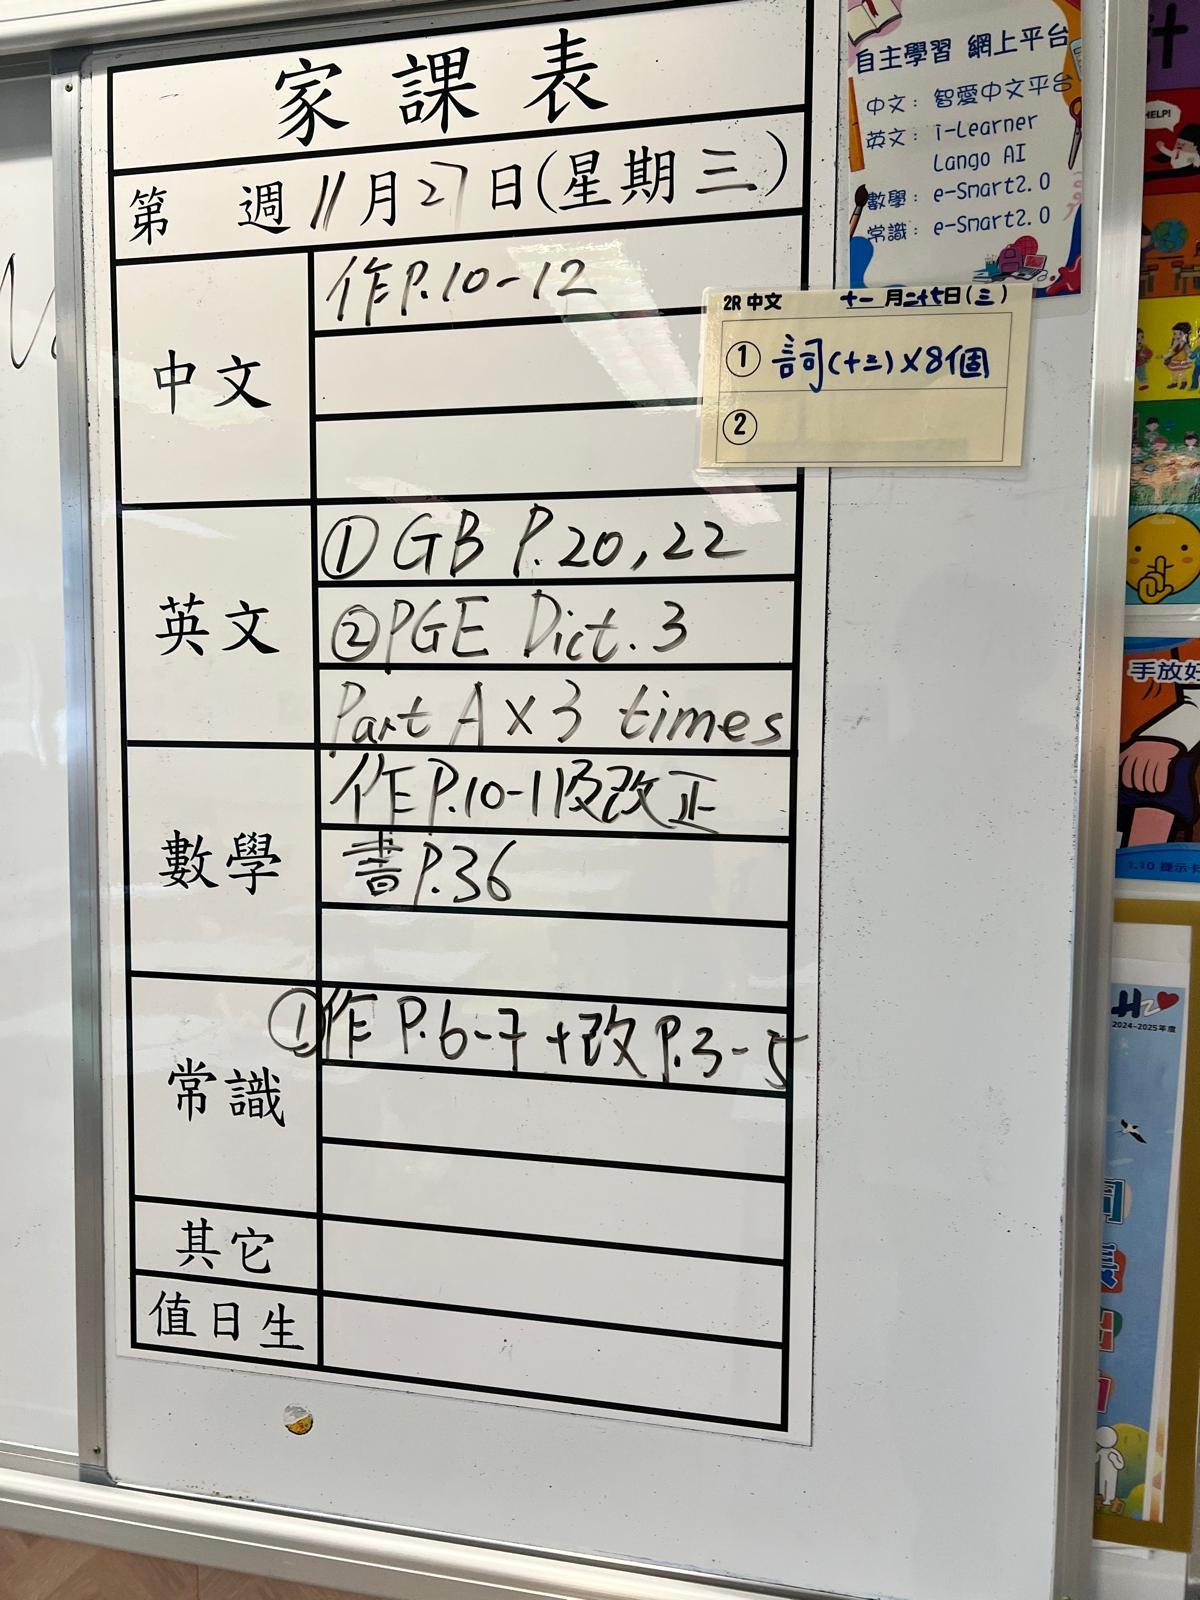 家課表
第 週 11月27日(星期三)
中文
作P.10-12
英文
①GB P.20,22
②PGE Dict.3
Part A x 3 times
數學
作P.10-11及改正
書P.36
常識
①作 P.6-7+改P.3-5
其它
值日生
自主學習 網上平台
中文：智愛中文平台
英文：i-Learner
Lango AI
數學：e-Smart2.0
常識：e-Smart2.0
2R 中文 十一月二十七日(三)
① 詞(十三)x8個
②
計
HELP!
手放好
1.10 提示卡
2024-2025年度